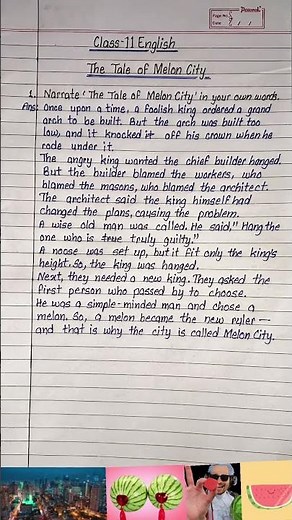 Page No.
Date
Class-11 English
The Tale of Melon City
1. Narrate 'The Tale of Melon City' in your own words.
Ans: Once upon a time, a foolish king ordered a grand
arch to be built. But the arch was built too
low, and it knocked it off his crown when he
rode under it.
The angry king wanted the chief builder hanged.
But the builder blamed the workers, who
blamed the masons, who blamed the architect.
The architect said the king himself had
changed the plans, causing the problem.
A wise old man was called. He said," Hang the
one who is true truly guilty."
A noose was set up, but it fit only the king's
height. So, the king was hanged.
Next, they needed a new king. They asked the
first person who passed by to choose.
He was a simple-minded man and chose a
melon. So, a melon became the new ruler —
and that is why the city is called Melon City.